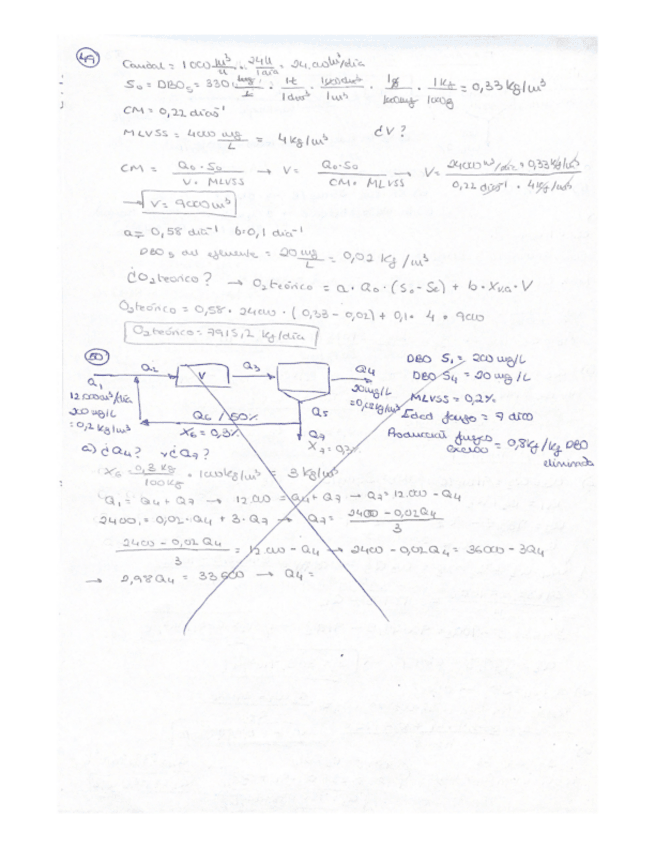 49
Caudal = 1000 m³/h · 24h/1día = 24.000 m³/día
S₀ = DBO₅ = 330 mg/L · 1L/1dm³ · 1000dm³/1m³ · 1g/1000mg · 1kg/1000g = 0,33 kg/m³
CM = 0,22 días⁻¹
MLVSS = 4000 mg/L = 4 kg/m³ ¿V?
CM = Q₀·S₀ / V·MLVSS → V = Q₀·S₀ / CM·MLVSS → V = 24000 m³/día · 0,33 kg/m³ / 0,22 días⁻¹ · 4 kg/m³
→ V = 9000 m³
a = 0,58 día⁻¹ b = 0,1 día⁻¹
DBO₅ del efluente = 20 mg/L = 0,02 kg/m³
¿O₂ teórico? → O₂ teórico = a · Q₀ · (S₀ - Se) + b · XVa · V
O₂ teórico = 0,58 · 24000 · (0,33 - 0,02) + 0,1 · 4 · 9000
O₂ teórico = 7915,2 kg/día
50
Q₁ Q₂ V Q₃ Q₄
12.000 m³/día
200 mg/L
= 0,2 kg/m³
20 mg/L
= 0,02 kg/m³
Q₆ / 60%
X₆ = 0,3%
Q₅
Q₇
X₇ = 0,3%
DBO S₁ = 200 mg/L
DBO S₄ = 20 mg/L
MLVSS = 0,2%
Edad fango = 7 días
Producción fango exceso = 0,8 kg/kg DBO eliminado
a) ¿Q₄? y ¿Q₇?
X₆ = 0,3 kg/100 kg · 1000 kg/m³ = 3 kg/m³
Q₁ = Q₄ + Q₇ → 12.000 = Q₄ + Q₇ → Q₇ = 12.000 - Q₄
2400 = 0,02 · Q₄ + 3 · Q₇ → Q₇ = 2400 - 0,02Q₄ / 3
2400 - 0,02Q₄ / 3 = 12.000 - Q₄ → 2400 - 0,02Q₄ = 36000 - 3Q₄
→ 2,98Q₄ = 33600 → Q₄ =